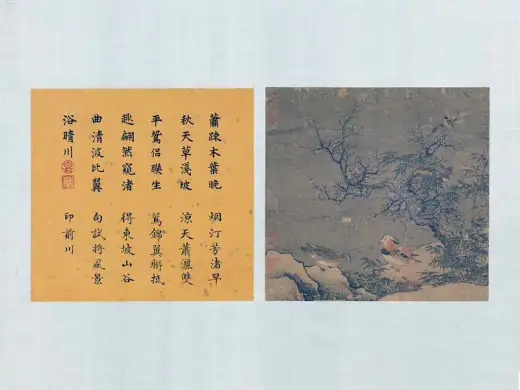 蕭疎木葉晚 烟汀芳渚早
秋天草淺坡 涼天蕭灑雙
平鴛侶暎生 鴛錦翼斠抵
趣翩然窺渚 得東坡山谷
曲清波比翼 句試將風景
浴晴川 印前川